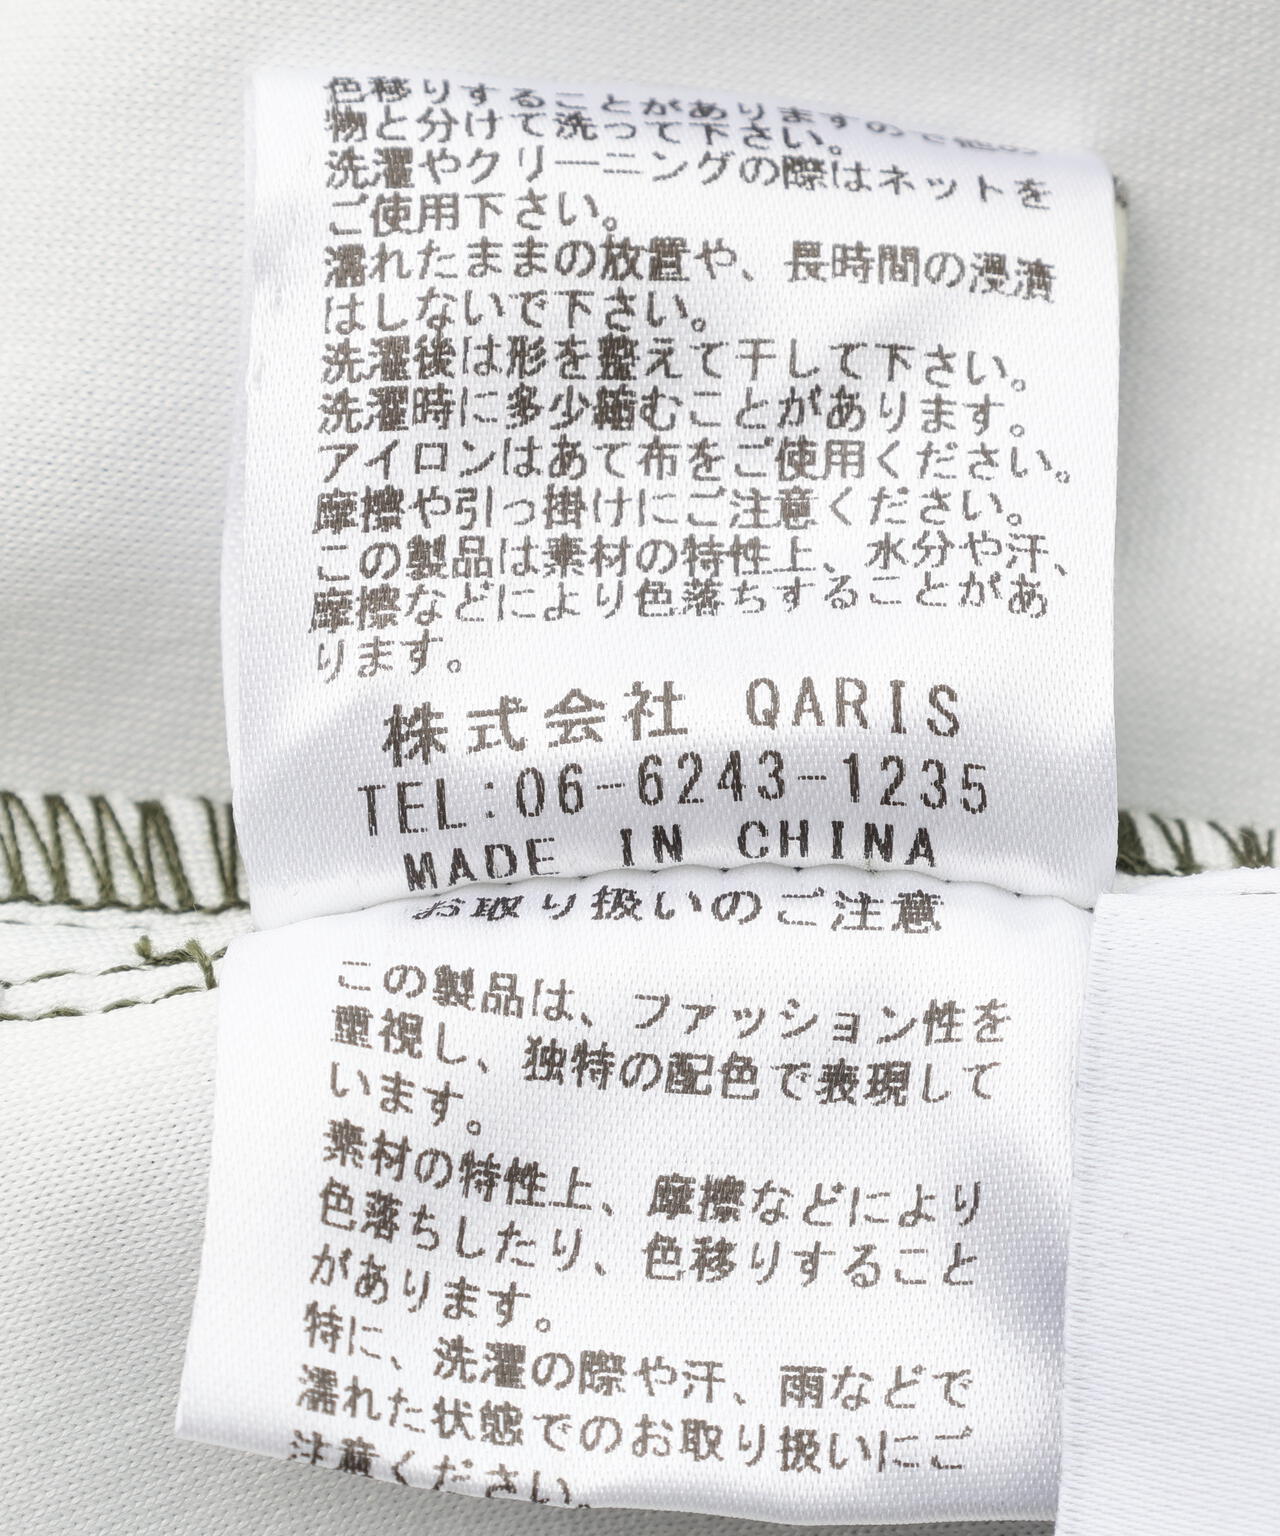 色移りすることがありますので他の
物と分けて洗って下さい。
洗濯やクリーニングの際はネットを
ご使用下さい。
濡れたままの放置や、長時間の浸漬
はしないで下さい。
洗濯後は形を整えて干して下さい。
洗濯時に多少縮むことがあります。
アイロンはあて布をご使用ください。
摩擦や引っ掛けにご注意ください。
この製品は素材の特性上、水分や汗、
摩擦などにより色落ちすることがあ
ります。
株式会社 QARIS
TEL:06-6243-1235
MADE IN CHINA
お取り扱いのご注意
この製品は、ファッション性を
重視し、独特の配色で表現して
います。
素材の特性上、摩擦などにより
色落ちしたり、色移りすること
があります。
特に、洗濯の際や汗、雨などで
濡れた状態でのお取り扱いにご
注意ください。